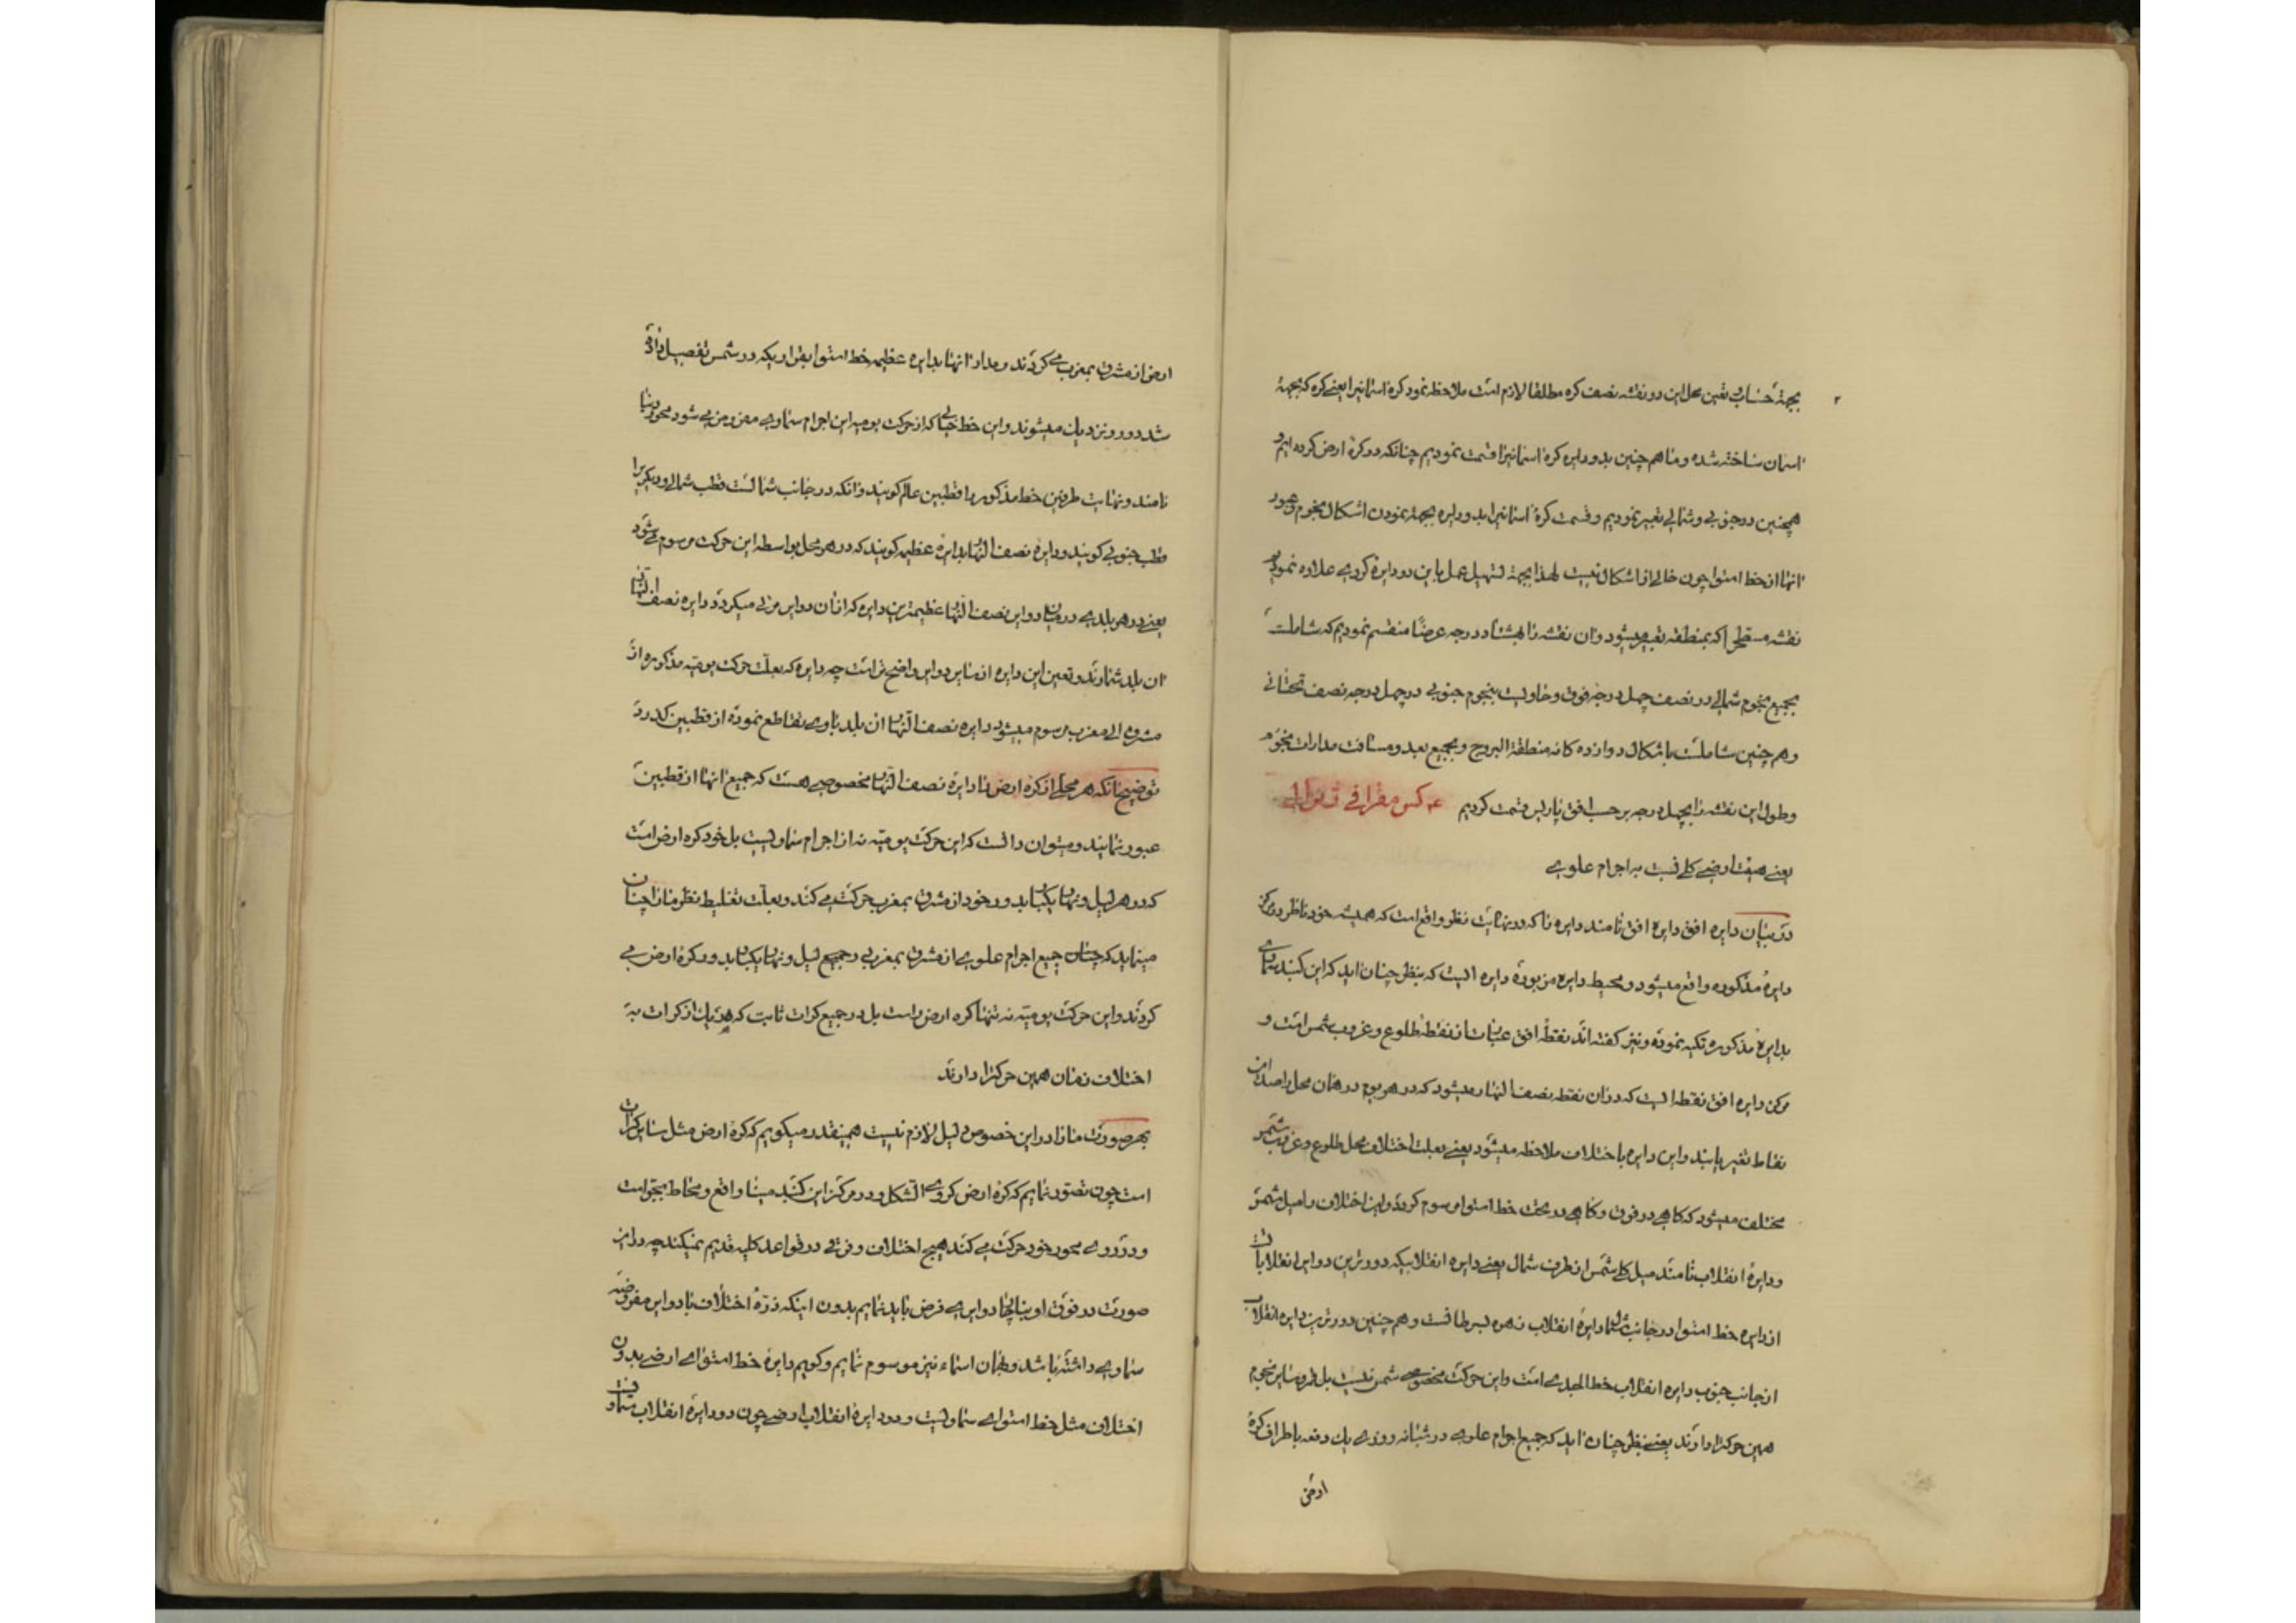 ۲
بجهة حساب و تعین محل این دو نقشه نصف کره مطلقا لازم است ملاحظه نمود کره اسمانیرا یعنی کره که بجهة
اسمان ساخته شده و ما هم چنین بدو دایره کره اسمانیرا قسمت نمودیم چنانکه در کرهٔ ارض کرده ایم و
همچنین در جنوبی و شمالی تعبیر نمودیم و قسمت کرهٔ اسمانیرا بدو دایره بجهة نمودن اشکال نجوم و عبور
انها از خط استوا چون خالی از اشکال نیست لهذا بجهة تسهیل عمل باین دو دایرهٔ کروی علاوه نمودیم
نقشه مسطحی را که بمنطقه تعبیر میشود و ان نقشه را بهشتاد درجه عرضًا منقسم نمودیم که شاملست
بجمیع نجوم شمالی در نصف چهل درجه فوق و حاویست بنجوم جنوبی در چهل درجه نصف تحتانی
و هم چنین شاملست باشکال دوازده کانه منطقة البروج و بجمیع بعد و مسافت مدارات نجوم
و طول این نقشه را بچهل درجه بر حسب افق پاریس قسمت کردیم
یعنی هیئت ارضی کلی نسبت به اجرام علوی
در بیان دایره افق دایره افق نامند دایره را که در نهایت نظر واقع است که همیشه خود ناظر در مرکز
دایرهٔ مذکوره واقع میشود و محیط دایره مزبوره دایره ایست که بنظر چنان اید که این کنبد سماوی
بدایرهٔ مذکوره تکیه نموده و نیز کفته اند نقطهٔ افق عبارت از نقطهٔ طلوع و غروب شمس است و
مرکز دایره افق نقطه ایست که در ان نقطه نصف النهار میشود که در هر یوم در همان محل راصد این
نقاط تغیر یابند و این دایره باختلاف ملاحظه میشود یعنی بعلت اختلاف محل طلوع و غروب شمس
مختلف میشود که کاهی در فوق و کاهی در تحت خط استوا مرسوم کردد و این اختلاف را میل شمس
و دایرهٔ انقلاب نامند میل کلی شمس از طرف شمال یعنی دایره انقلابیکه دورترین دوایر انقلابات
از دایره خط استوا در جانب شمال دایرهٔ انقلاب نهره لسرطانست و هم چنین دورترین دایره انقلاب
از جانب جنوب دایره انقلاب خط الجدی است و این حرکت مخصوص شمس نیست بل قمر و سایر نجوم
همین حرکترا دارند یعنی بنظر چنان اید که جمیع اجرام علوی در شبانه روزی یك دفعه باطراف کرهٔ
ارض
ارض از مشرق بمغرب می کردند و مدار انها بدایره عظیمه خط استوا بقراریکه در شمس تفصیل داده
شد دور و نزدیك میشوند و این خط خیالی که از حرکت یومیه این اجرام سماوی مفروض می شود محور دنیا
نامند و نهایت طرفین خط مذکور را قطبین عالم کویند و انکه در جانب شمالست قطب شمالی و دیکریرا
قطب جنوبی کویند و دایرهٔ نصف النهار بدایرهٔ عظیمه کویند که در هر محل بواسطه این حرکت مرسوم می شود
یعنی در هر بلدی در میان دوایر نصف النهار عظیمترین دایره که از ان دوایر مرئی میکردد دایره نصف النهار
ان بلد شمارند و تعین این دایره از سایر دوایر واضح تر است چه دایره که بعلت حرکت یومیه مذکوره از
مشرق الی مغرب مرسوم میشود دایره نصف النهار ان بلد باوی تقاطع نموده از قطبین کذرد
توضیح انکه هر محلی از کره ارض را دایرهٔ نصف النهار مخصوصی هست که جمیع انها از قطبین
عبور نمایند و میتوان دانست که این حرکت یومیه نه از اجرام سماویست بل خود کره ارض است
که در هر لیل و نهار یکبار بدور خود از مشرق بمغرب حرکت می کند و بعلت تغلیط نظر ما را چنان
مینماید که چنان جمیع اجرام علوی از مشرق بمغربی در جمیع لیل و نهار یکبار بدور کرهٔ ارض می
کردند و این حرکت یومیه نه تنها کره ارض راست بل در جمیع کرات ثابت که هر یك از کرات به
اختلاف زمان همین حرکترا دارند
بهر صورت ما را در این خصوص دلیل لازم نیست همینقدر میکویم که کرهٔ ارض مثل سایر کرات
است چون تصور نمایم که کرهٔ ارض کروی الشکل و در مرکز این کنبد مینا واقع و محاط بجو است
و در روی محور خود حرکت می کند هیچ اختلاف و فرقی در قواعد کلیه قدیم نمیکند چه در این
صورت در فوق او بنابچار دوایری فرض باید نمایم بدون اینکه ذرهٔ اختلاف با دوایر مفروضه
سماوی داشته باشد و بهمان اسماء نیز موسوم نمایم و کویم دایرهٔ خط استوای ارضی بدون
اختلاف مثل خط استوای سماویست و دو دایرهٔ انقلاب ارضی چون دو دایرهٔ انقلاب سماویست